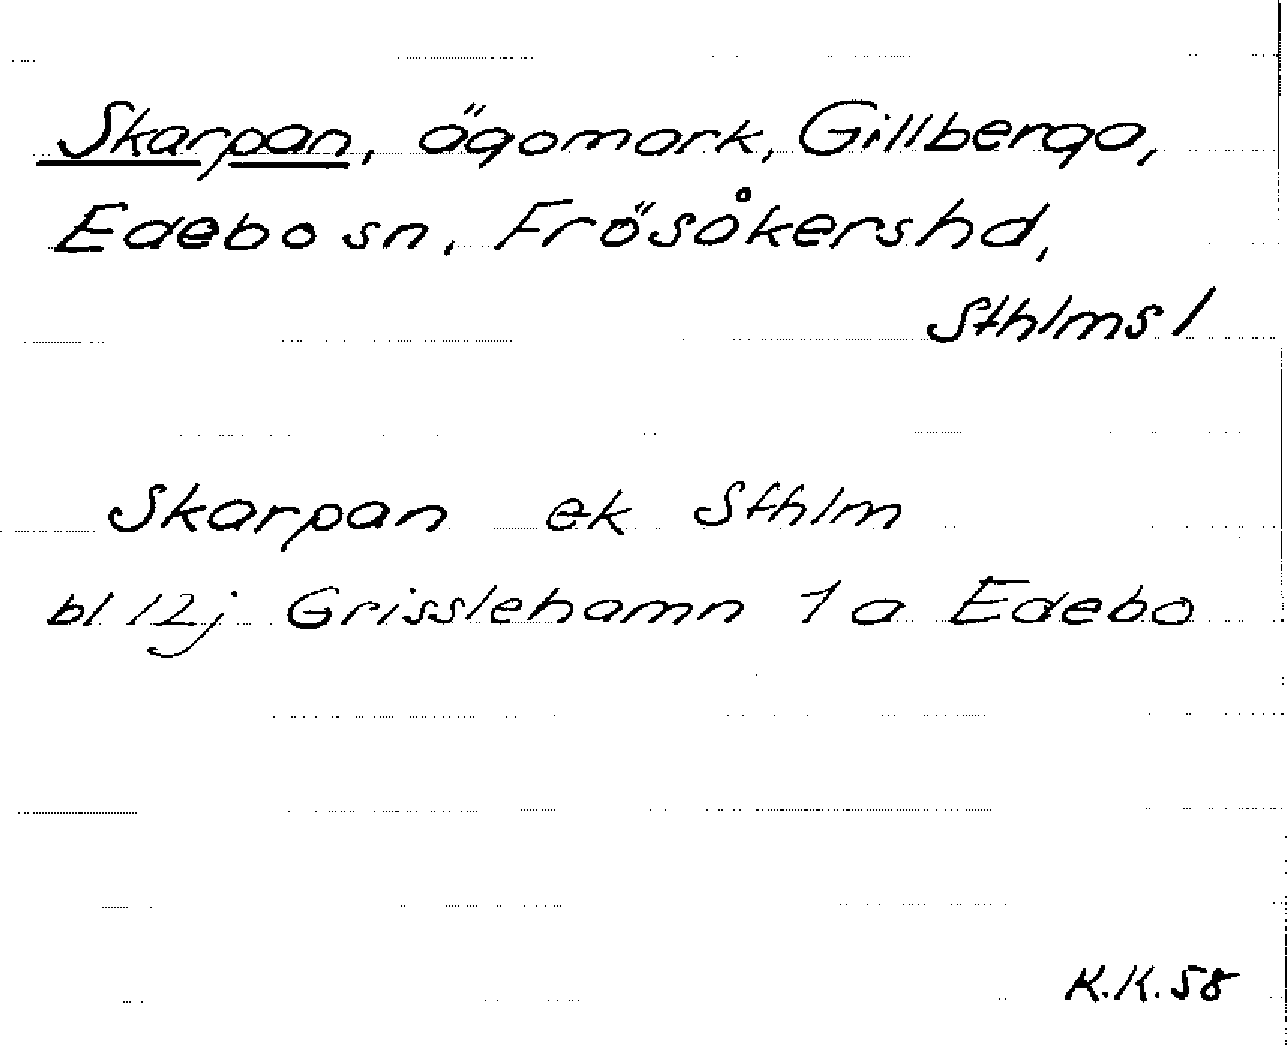 Skarpan, ägomark, Gillberga,
Edebo sn, Frösåkershd,
Sthlms l
Skarpan ek Sthlm
bl 12j Grisslehamn 1a Edebo
K.K.58